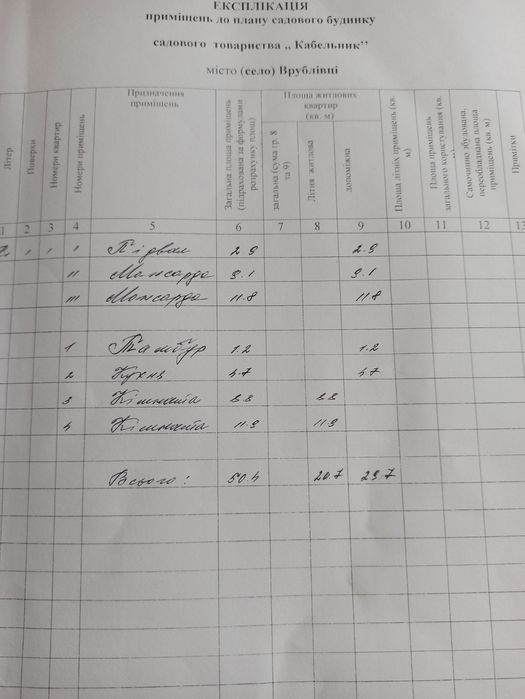 ЕКСПЛІКАЦІЯ
приміщень до плану садового будинку
садового товариства „ Кабельник”
місто (село) Врублівці
Літер
Поверки
Номери квартир
Номери приміщень
Призначення
приміщень
Загальна площа приміщень
(підрахована за формулами
розрахунку площ)
Площа житлових
квартир
(кв. м)
загальна (сума гр. 8
та 9)
Літня житлова
допоміжна
Площа літніх приміщень (кв.
м)
Площа приміщень
загального користування (кв.
Самочинно збудована,
переобладнана площа
приміщень (кв. м)
Примітки
1 2 3 4 5 6 7 8 9 10 11 12 13
І І І Підвал 2.9 2.9
ІІ Мансарда 9.1 9.1
ІІІ Мансарда 11.8 11.8
1 Тамбур 1.2 1.2
2 Кухня 4.7 4.7
3 Кімната 8.8 8.8
4 Кімната 11.9 11.9
Всього: 50.4 20.7 29.7